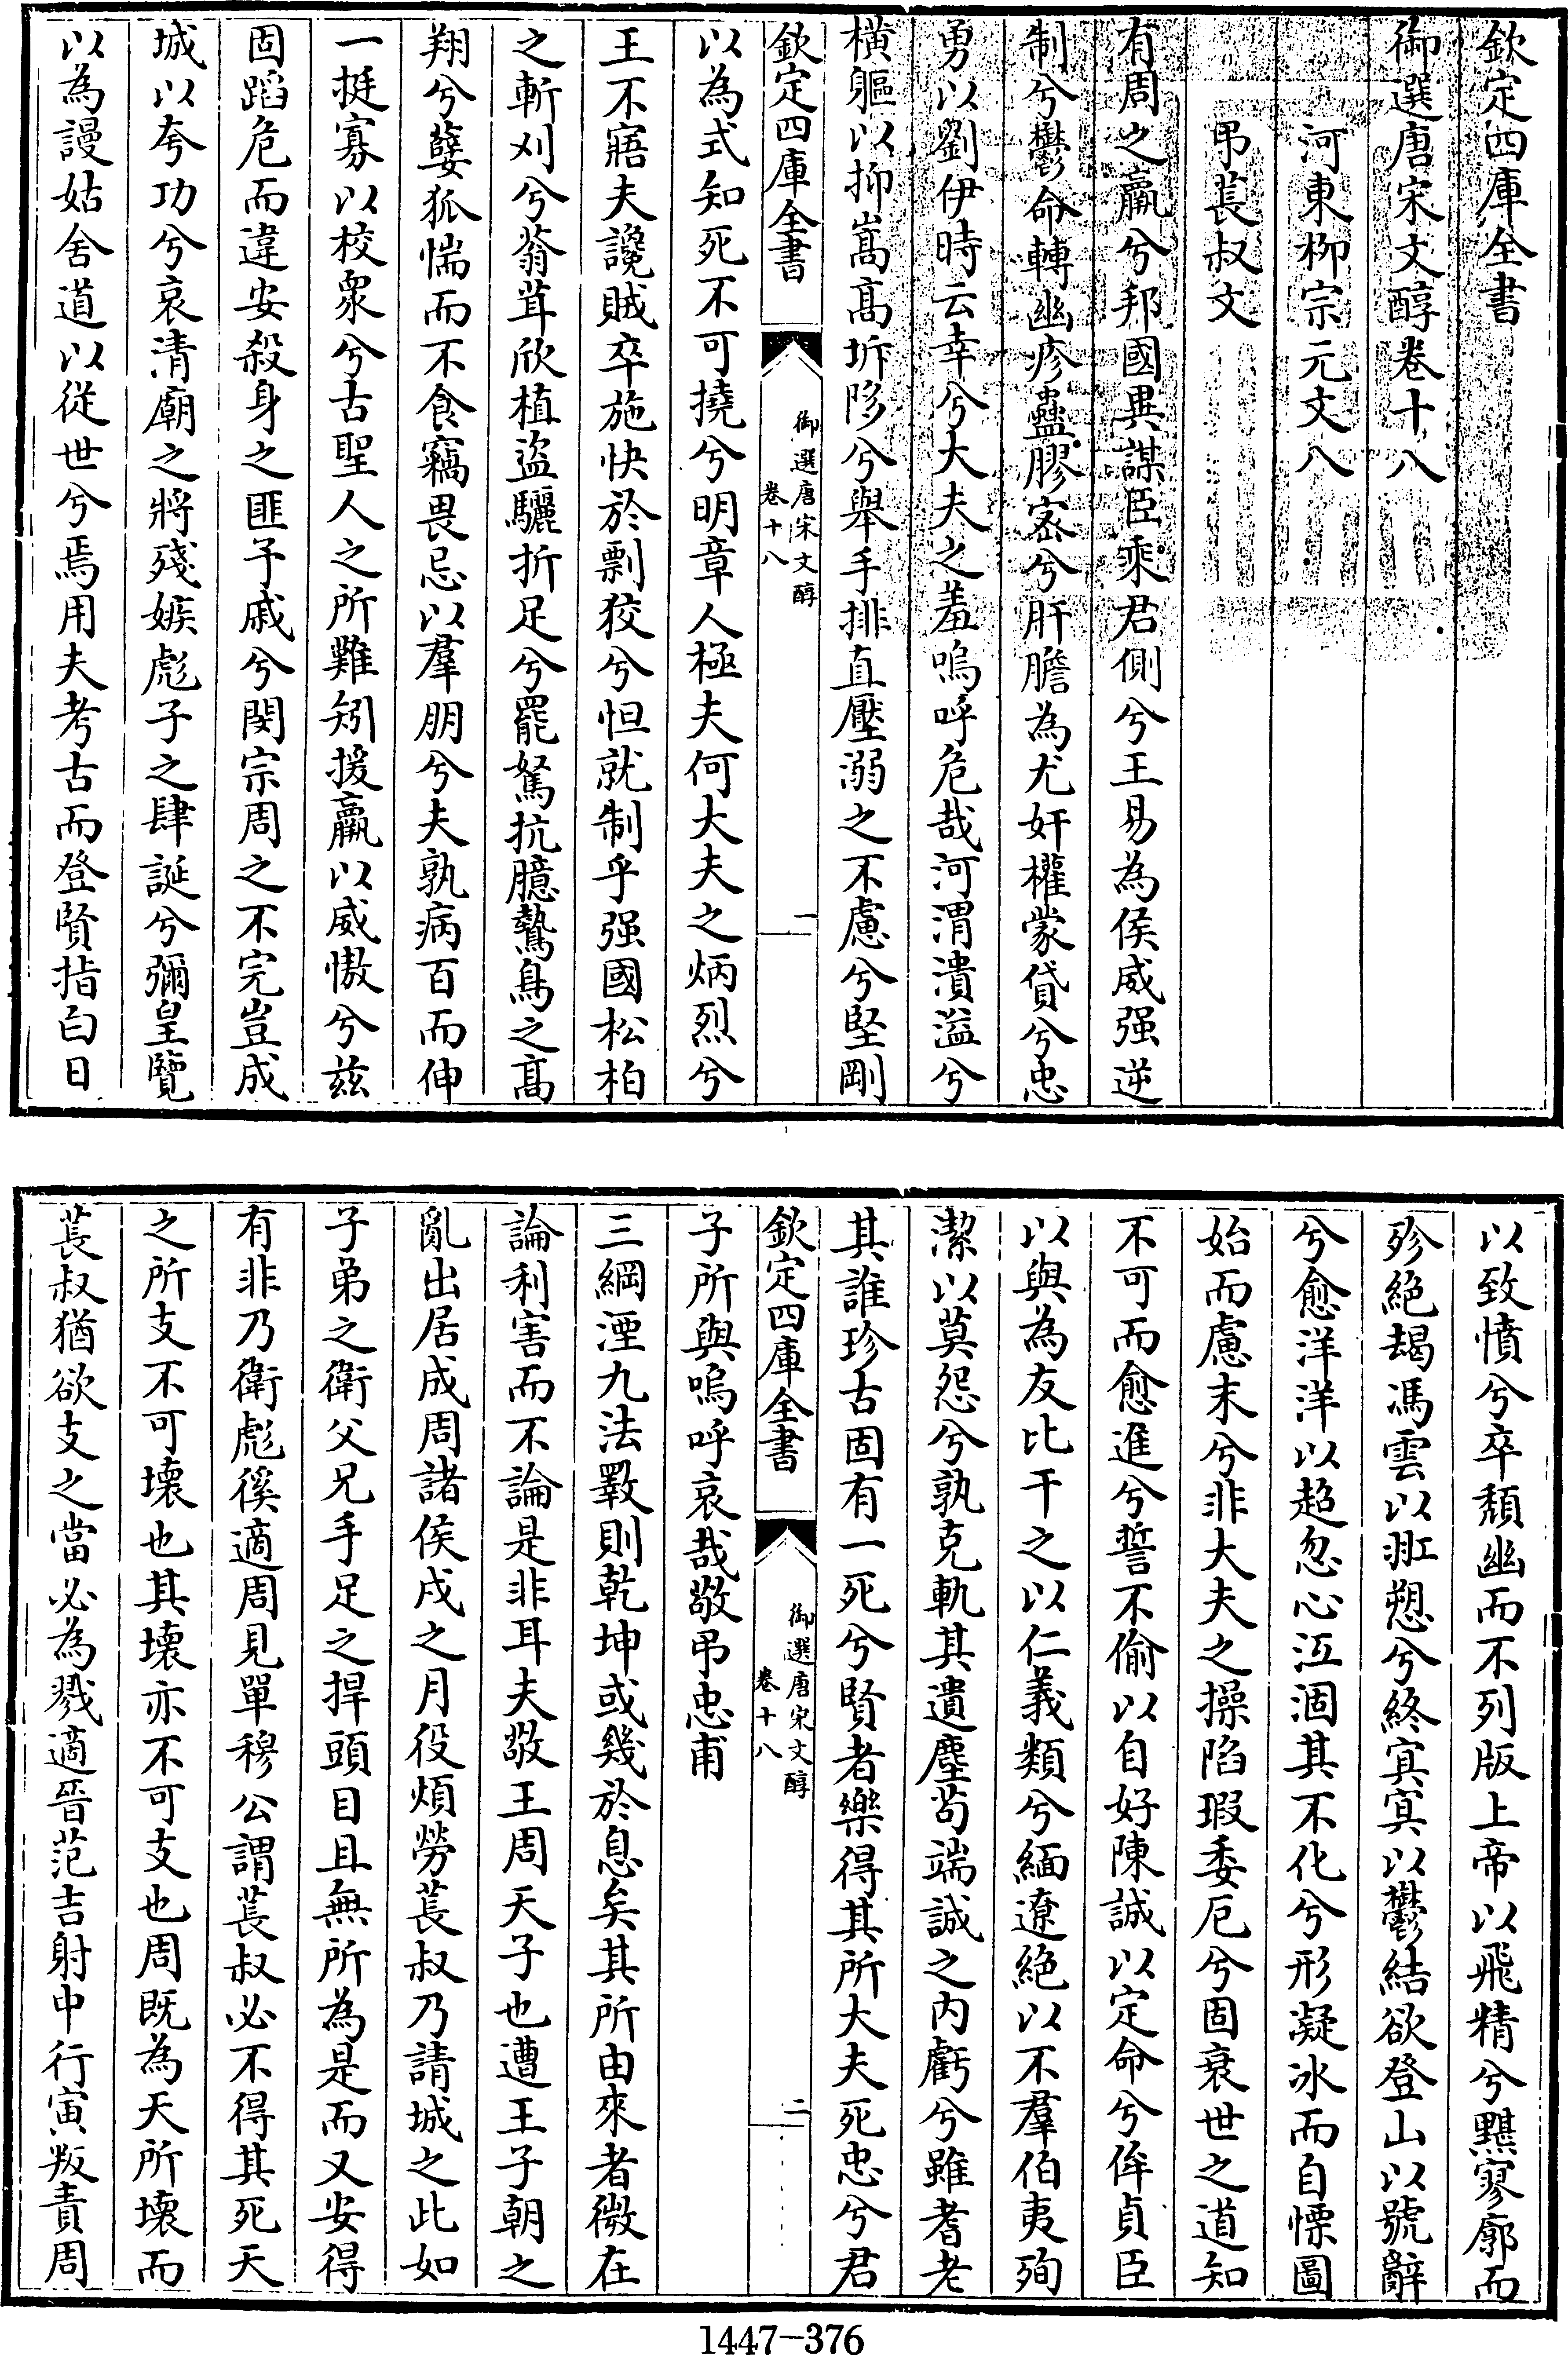 欽定四庫全書
御選唐宋文醇卷十八
河東柳宗元文八
弔萇叔文
有周之羸兮邦國異謀臣乘君側兮王易為侯威强逆
制兮鬱命轉幽疹蠱膠密兮肝膽為尤奸權蒙貸兮忠
勇以劉伊時云幸兮大夫之羞嗚呼危哉河渭潰溢兮
橫軀以抑嵩高坼陊兮舉手排直壓溺之不慮兮堅剛
欽定四庫全書
御選唐宋文醇
卷十八
一
以為式知死不可撓兮明章人極夫何大夫之炳烈兮
王不寤夫讒賊卒施快於剽狡兮怛就制乎强國松柏
之斬刈兮蓊茸欣植盜驪折足兮罷駑抗臆鷙鳥之高
翔兮孽狐惴而不食竊畏忌以羣朋兮夫孰病百而伸
一挺寡以校衆兮古聖人之所難矧援羸以威慠兮兹
固蹈危而違安殺身之匪予戚兮閔宗周之不完豈成
城以夸功兮哀清廟之將殘嫉彪子之肆誕兮彌皇覽
以為謾姑舍道以從世兮焉用夫考古而登賢指白日
以致憤兮卒頹幽而不列版上帝以飛精兮黮寥廓而
殄絶朅馮雲以羾愬兮終冥冥以鬱結欲登山以號辭
兮愈洋洋以超忽心沍涸其不化兮形凝冰而自慄圖
始而慮末兮非大夫之操陷瑕委厄兮固衰世之道知
不可而愈進兮誓不偷以自好陳誠以定命兮侔貞臣
以與為友比干之以仁義類兮緬遼絶以不羣伯夷殉
潔以莫怨兮孰克軌其遺塵茍端誠之内虧兮雖耆老
其誰珍古固有一死兮賢者樂得其所大夫死忠兮君
欽定四庫全書
御選唐宋文醇
卷十八
二
子所與嗚呼哀哉敬弔忠甫
三綱湮九法斁則乾坤或幾於息矣其所由來者微在
論利害而不論是非耳夫敬王周天子也遭王子朝之
亂出居成周諸侯戍之月役煩勞萇叔乃請城之此如
子弟之衛父兄手足之捍頭目且無所為是而又安得
有非乃衛彪徯適周見單穆公謂萇叔必不得其死天
之所支不可壞也其壞亦不可支也周既為天所壞而
萇叔猶欲支之當必為戮適晉范吉射中行寅叛責周
1447-376